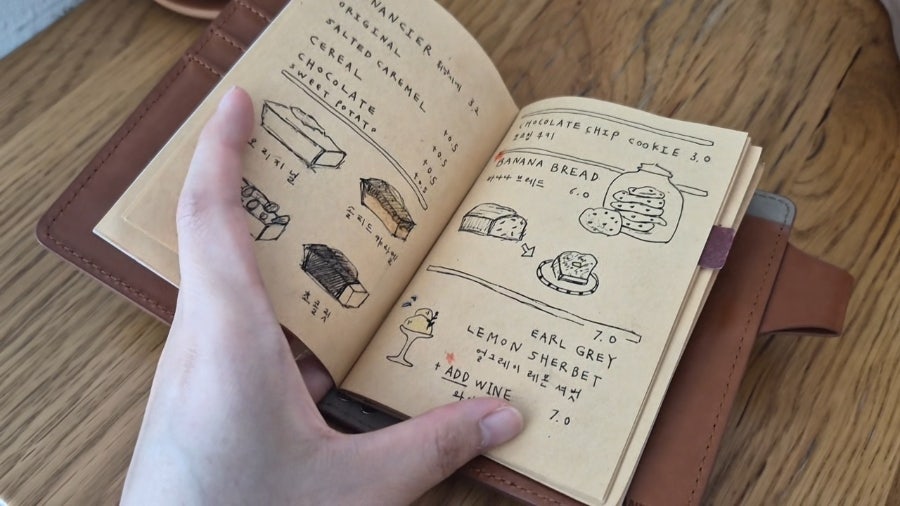 NANCIER
휘낭시에 3.2
ORIGINAL
SALTED CAREMEL +0.5
CEREAL +0.5
CHOCOLATE +0.5
SWEET POTATO +0.5
오리지널
솔티드 카라멜
초콜릿
CHOCOLATE CHIP COOKIE 3.0
초코칩 쿠키
BANANA BREAD
바나나 브레드 6.0
EARL GREY 7.0
LEMON SHERBET
얼그레이 레몬 셔벗
+ ADD WINE
7.0